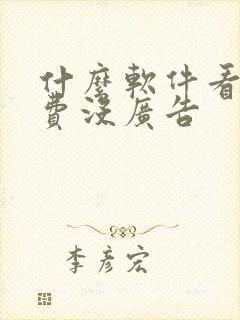 什麼軟件看
費沒廣告
李彥宏